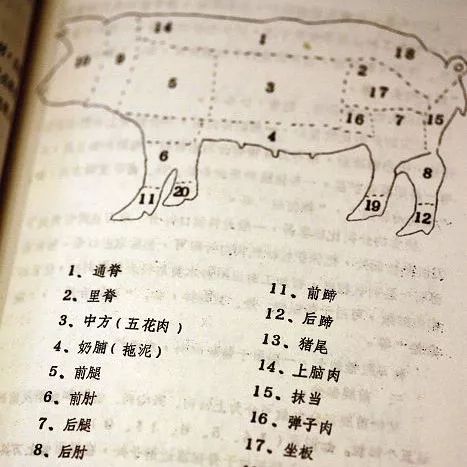 14
1
18
9
2
5
3
17
16
7
15
4
6
8
11
20
19
12
1、通脊
2、里脊
3、中方（五花肉）
4、奶脯（拖泥）
5、前腿
6、前肘
7、后腿
8、后肘
11、前蹄
12、后蹄
13、猪尾
14、上脑肉
15、抹当
16、弹子肉
17、坐板